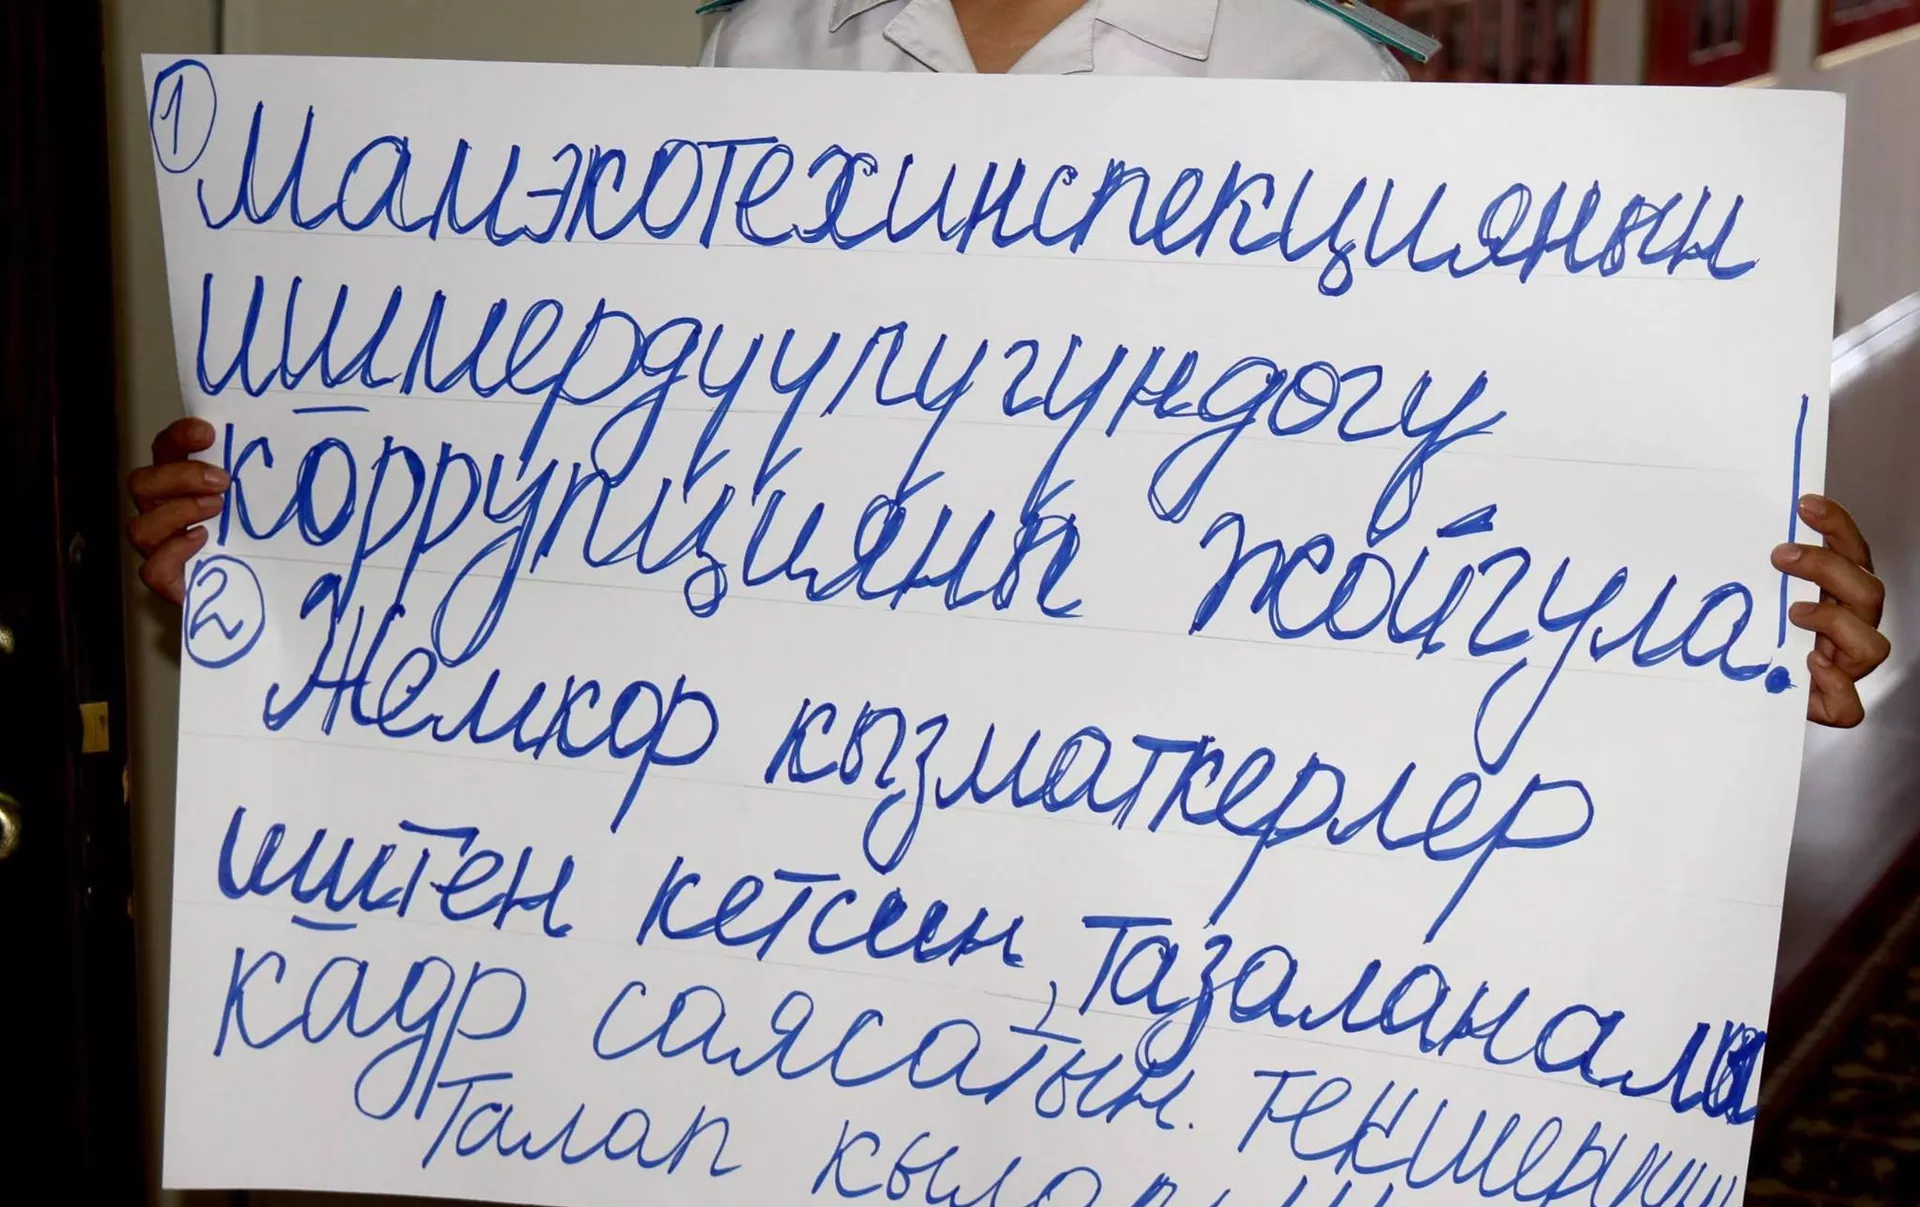 ① Мамэкотехинспекциянын
ишмердуулугундогу
коррупцияны жойгула!
② Жемкор кызматкерлер
иштен кетсин, тазаланалы
кадр саясатын. текшерүүнү
талап кылабыз